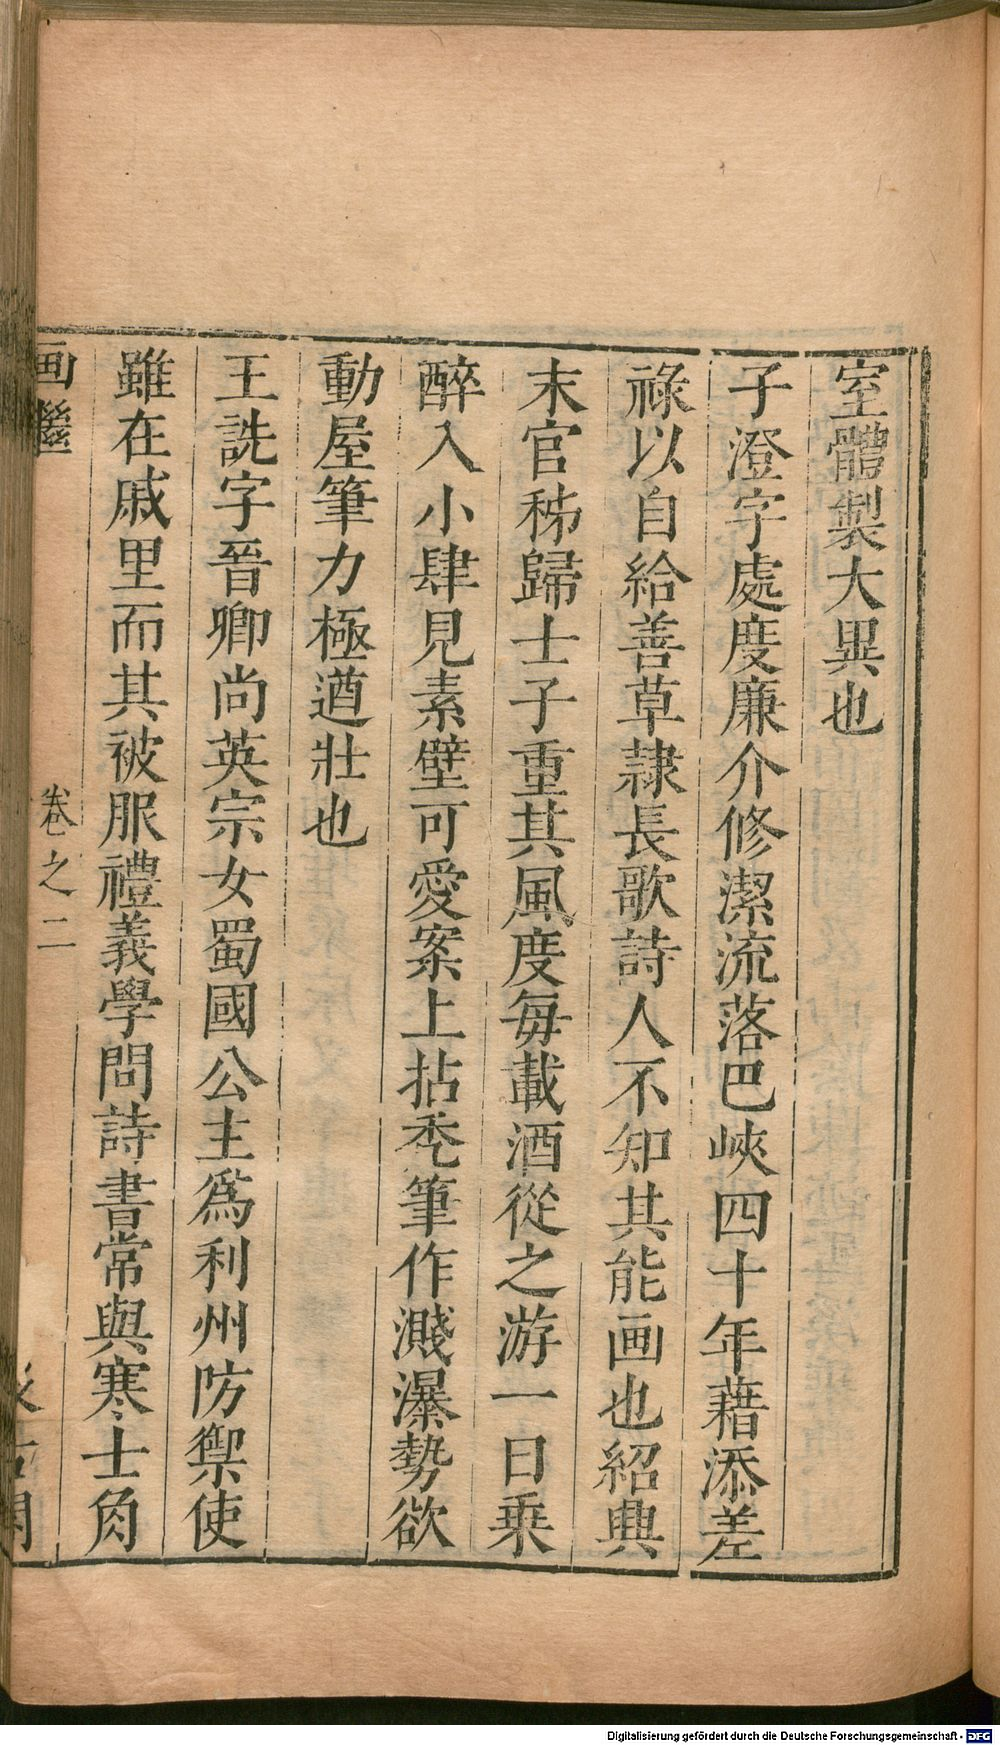 室體製大異也
子澄字處度廉介修潔流落巴峽四十年藉添差
祿以自給善草隷長歌詩人不知其能画也紹興
末官秭歸士子重其風度每載酒從之游一日乗
醉入小肆見素壁可愛案上拈禿筆作濺瀑勢欲
動屋筆力極遒壯也
王詵字晉卿尚英宗女蜀國公主爲利州防禦使
雖在戚里而其被服禮義學問詩書常與寒士角
画繼
卷之二
Digitalisierung gefördert durch die Deutsche Forschungsgemeinschaft - DFG